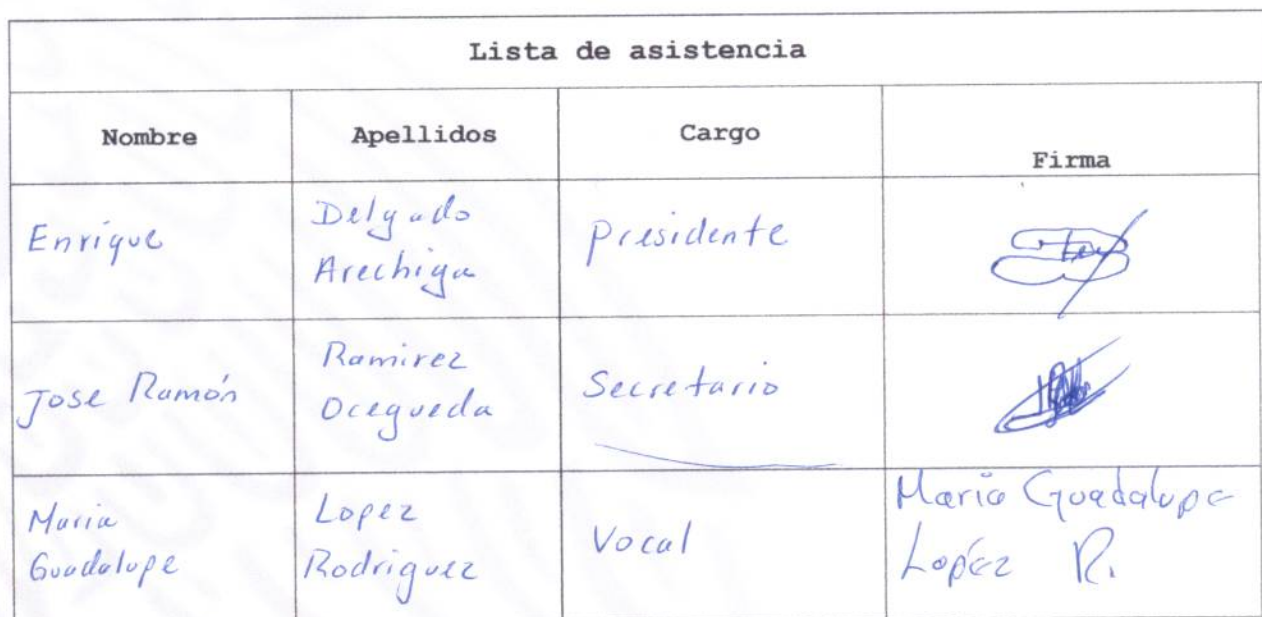 Lista de asistencia
Nombre Apellidos Cargo Firma
Enrique Delgado Arechiga Presidente
Jose Ramón Ramirez Ocegueda Secretario
Maria Guadalupe Lopez Rodriguez Vocal Maria Guadalupe Lopéz R.